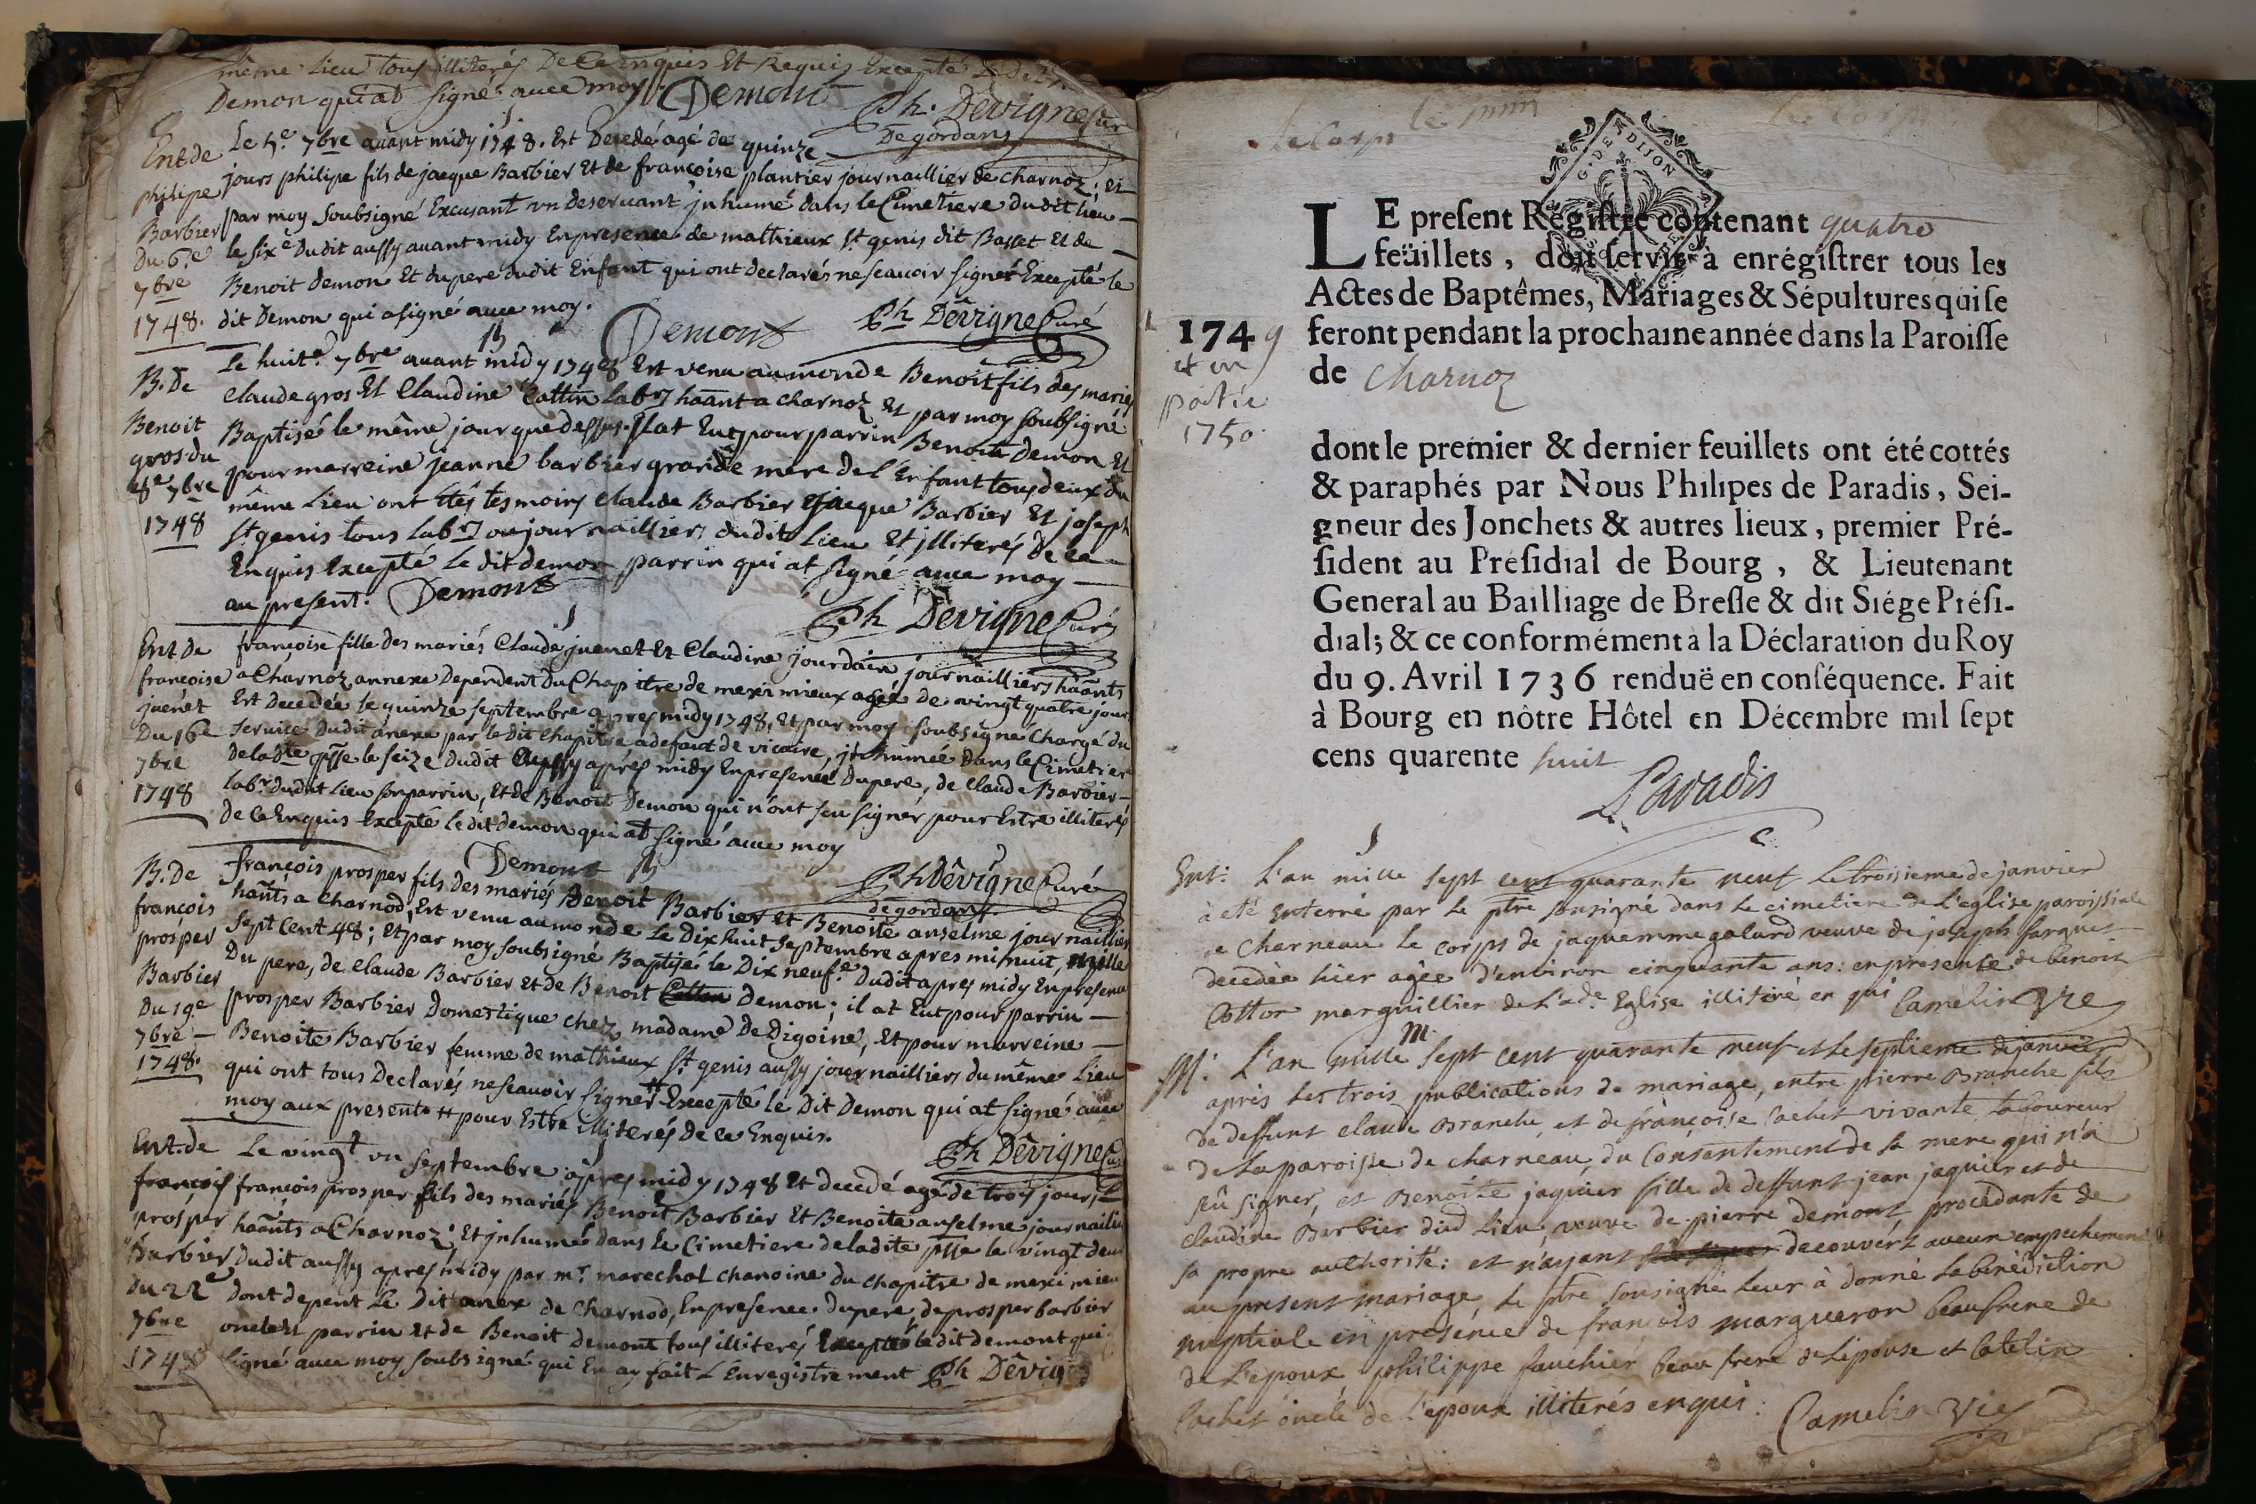 même Lieu tous illiterés De Ce enquis Et Requis Excepté
Demon qui at signé avec moy. Demont
Ph. Dêvigne Curé
De gordans
Ent. de
philipe
Barbier
Du 6.e
7bre
1748.
Le 5.e 7bre avant midy 1748. Est Decedé agé de quinze
jours philipe fils de jacque Barbier Et de françoise plantier journaillier de Charnoz; et
par moy soubsigné Excusant un Deservant jnhumé dans le Cimetiere dudit lieu
le six.e Dudit aussy avant midy En presence de mathieux st genis dit Basset Et de
Benoit demon Et du pere dudit Enfant qui ont declarés ne scavoir signer Excepté le
dit Demon qui a signé avec moy.
Demont Ph Dêvigne Curé
B. De
Benoit
gros du
8.e 7bre
1748
Le huit.e 7bre avant midy 1748 Est venu au monde Benoit fils des mariés
Claude gros Et Claudine Cattin Lab.rs haânt a Charnoz Et par moy soubsigné
Baptisé le même jour que dessus. Il at Eut pour parrin Benoit Demon Et
pour marreine jeanne barbier grande mere de l'Enfant tous deux du
même Lieu ont Etés tesmoins Claude Barbier jacque Barbier Et joseph
st genis tous Lab.rs ou journailliers dudit Lieu Et jlliterés De Ce
Enquis Excepté Le dit demon parrin qui at signé avec moy
au present. Demont
Ph Dêvigne Curé
Ent de
françoise
juenet
Du 16.e
7bre
1748
françoise fille des mariés Claude juenet Et Claudine jourdain journailliers haânts
a Charnoz annexe Dependent Du Chapitre de meximieux agée de vingt quatre jours
Est Decedée le quinze septembre apres midy 1748. Et par moy soubsigné Chargé du
service Dudit anexe par le dit Chapitre a defaut de vicaire, jnhumée Dans le Cimetiere
de lad.te psse le seize Dudit aussy après midy En presence du pere, de Claude Barbier
lab.r dudit Lieu son parrin, Et de Benoit Demon qui n'ont sçu signer pour Estre illiterés
de Ce Enquis Excepté le dit demon qui at signé avec moy
Demont Ph Dêvigne Curé
de gordans.
B. De
françois
prosper
Barbier
du 19.e
7bre
1748.
françois prosper fils des mariés Benoit Barbier Et Benoite anselme journailliers
haânts a Charnod, Est venu au monde Le Dixhuit Septembre apres minuit, mille
sept Cent 48; Et par moy soubsigné Baptisé le Dix neuf.e dudit apres midy En presence
Du pere, de Claude Barbier Et de Benoit Demon; il at Eut pour parrin
prosper Barbier Domestique chez madame De Digoine, Et pour marreine
Benoite Barbier femme de mathieux st genis aussy journailliers du même Lieu
qui ont tous Declarés ne scavoir signer # Excepté le Dit Demon qui at signé avec
moy aux presents # pour Estre illiterés De Ce Enquis.
Ph Dêvigne Curé
Ent. de
françois
prosper
Barbier
du 22.e
7bre
1748
Le vingt un septembre apres midy 1748 Et decedé agé de trois jours
françois prosper fils des mariés Benoit Barbier Et Benoite anselme journailliers
haânts a Charnoz; Et jnhumé dans Le Cimetiere de ladite psse le vingt deux
dudit aussy apres midy par m.r marechal chanoine du chapitre de meximieu
dont depent Le Dit anex de Charnod, En presence du pere, de prosper barbier
oncle Et parrin Et de Benoit demont tous illiterés Excepté le dit demont qui
signé avec moy soubsigné qui En ay fait L'Enregistrement Ph Dêvigne
Le Corps
LE preſent Regiſtre contenant quatre
feüillets, doit ſervir à enrégiſtrer tous les
Actes de Baptêmes, Mariages & Sépultures qui ſe
feront pendant la prochaine année dans la Paroiſſe
de Charnoz
G. DE DIJON
1749
et en
partie
1750.
dont le premier & dernier feuillets ont été cottés
& paraphés par Nous Philipes de Paradis, Sei-
gneur des Jonchets & autres lieux, premier Pré-
ſident au Préſidial de Bourg, & Lieutenant
General au Bailliage de Breſſe & dit Siége Préſi-
dial; & ce conformément à la Déclaration du Roy
du 9. Avril 1736 renduë en conſéquence. Fait
à Bourg en nôtre Hôtel en Décembre mil ſept
cens quarente huit
Paradis
Ent: L'an mille sept cent quarante neuf le troisieme de janvier
à eté Enterré par le ptre sousigné dans le cimetiere de L'eglise paroissiale
de Charneau le corps de jaquemme galand veuve de joseph
decedée hier agée d'environ cinquante ans: en presence de benoit
Cottor marguillier de L'ad.e Eglise illitéré en qui Camelin Vre
M: L'an mille sept cent quarante neuf et le septieme de janvier
après les trois publications de mariage, entre pierre Branche fils
de deffunt claude Branche, et de françoise Cachet vivante Laboureur
de La paroisse de charneau, du Consentement de sa mere qui n'a
seû signer, et Benoîte jaquier fille de deffunt jean jaquier et de
claudine Barbier dud Lieu, veuve de pierre Demont procedante de
sa propre authorité: et n'ayant decouvert aucun empechement
au present mariage, le ptre sousigné leur à donné la bénédiction
nuptiale en présence de françois margueron beaufrere de
de L'epoux philippe fauchier beau frere de L'épouse et Catelin
Cachet oncle de L'epoux illiterés enqui: Camelin Vre